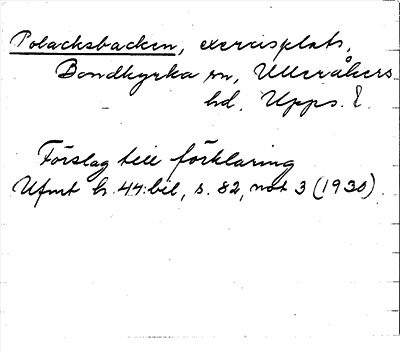 Polacksbacken, exercisplats,
Bondkyrka sn, Ulleråkers
hd, Upps. l.
Förslag till förklaring
Ufmt h. 44: bil, s. 82, not 3 (1930).